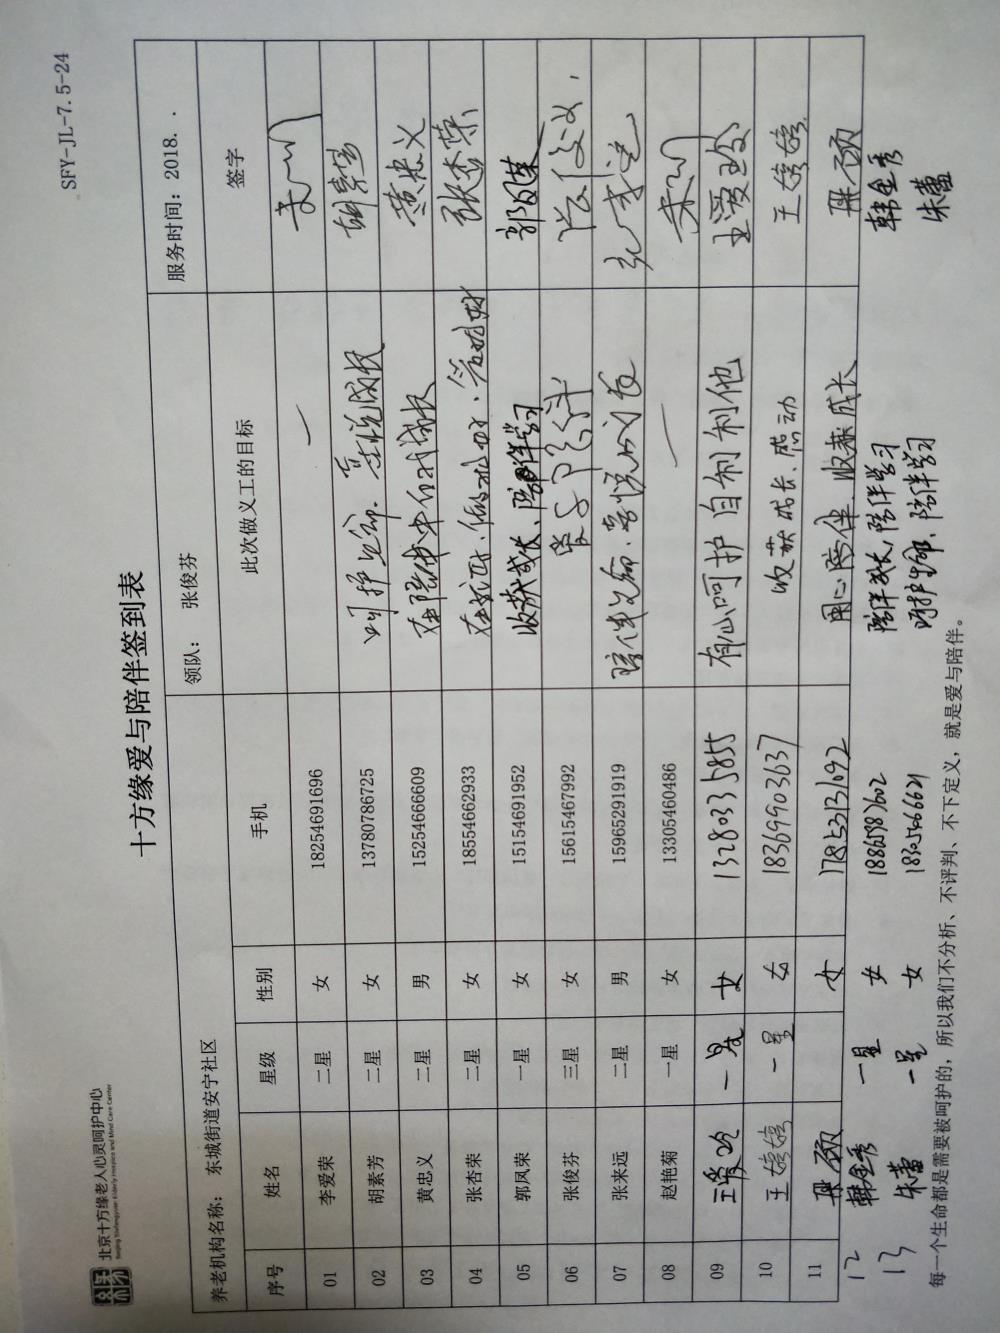 北京十方缘老人心灵呵护中心
SFY-JL-7.5-24
十方缘爱与陪伴签到表
养老机构名称： 东城街道安宁社区 领队： 张俊芬 服务时间：2018. .
序号 姓名 星级 性别 手机 此次做义工的目标 签字
01 李爱荣 二星 女 18254691696 —
02 胡素芳 二星 女 13780786725 呵护生命. 喜悦成长 胡素芳
03 黄忠义 二星 男 15254666609 在陪伴中自我成长 黄忠义
04 张杏荣 二星 女 18554662933 张杏荣
05 郭凤荣 一星 女 15154691952 收获成长、陪伴学习 郭凤荣
06 张俊芬 三星 女 15615467992
07 张来远 二星 男 15965291919 陪伴生命.喜悦
08 赵艳菊 一星 女 13305460486 —
09 王爱玲 一星 女 13280335855 有心呵护自利利他 王爱玲
10 王婷婷 一星 女 18369903637 收获成长、感动 王婷婷
11 女 17853131692 用心陪伴 收获成长
12 韩金秀 一星 女 18865983602 陪伴成长，陪伴学习 韩金秀
13 朱蕾 一星 女 18305466621 呵护生命、陪伴学习 朱蕾
每一个生命都是需要被呵护的，所以我们不分析、不评判、不下定义，就是爱与陪伴。